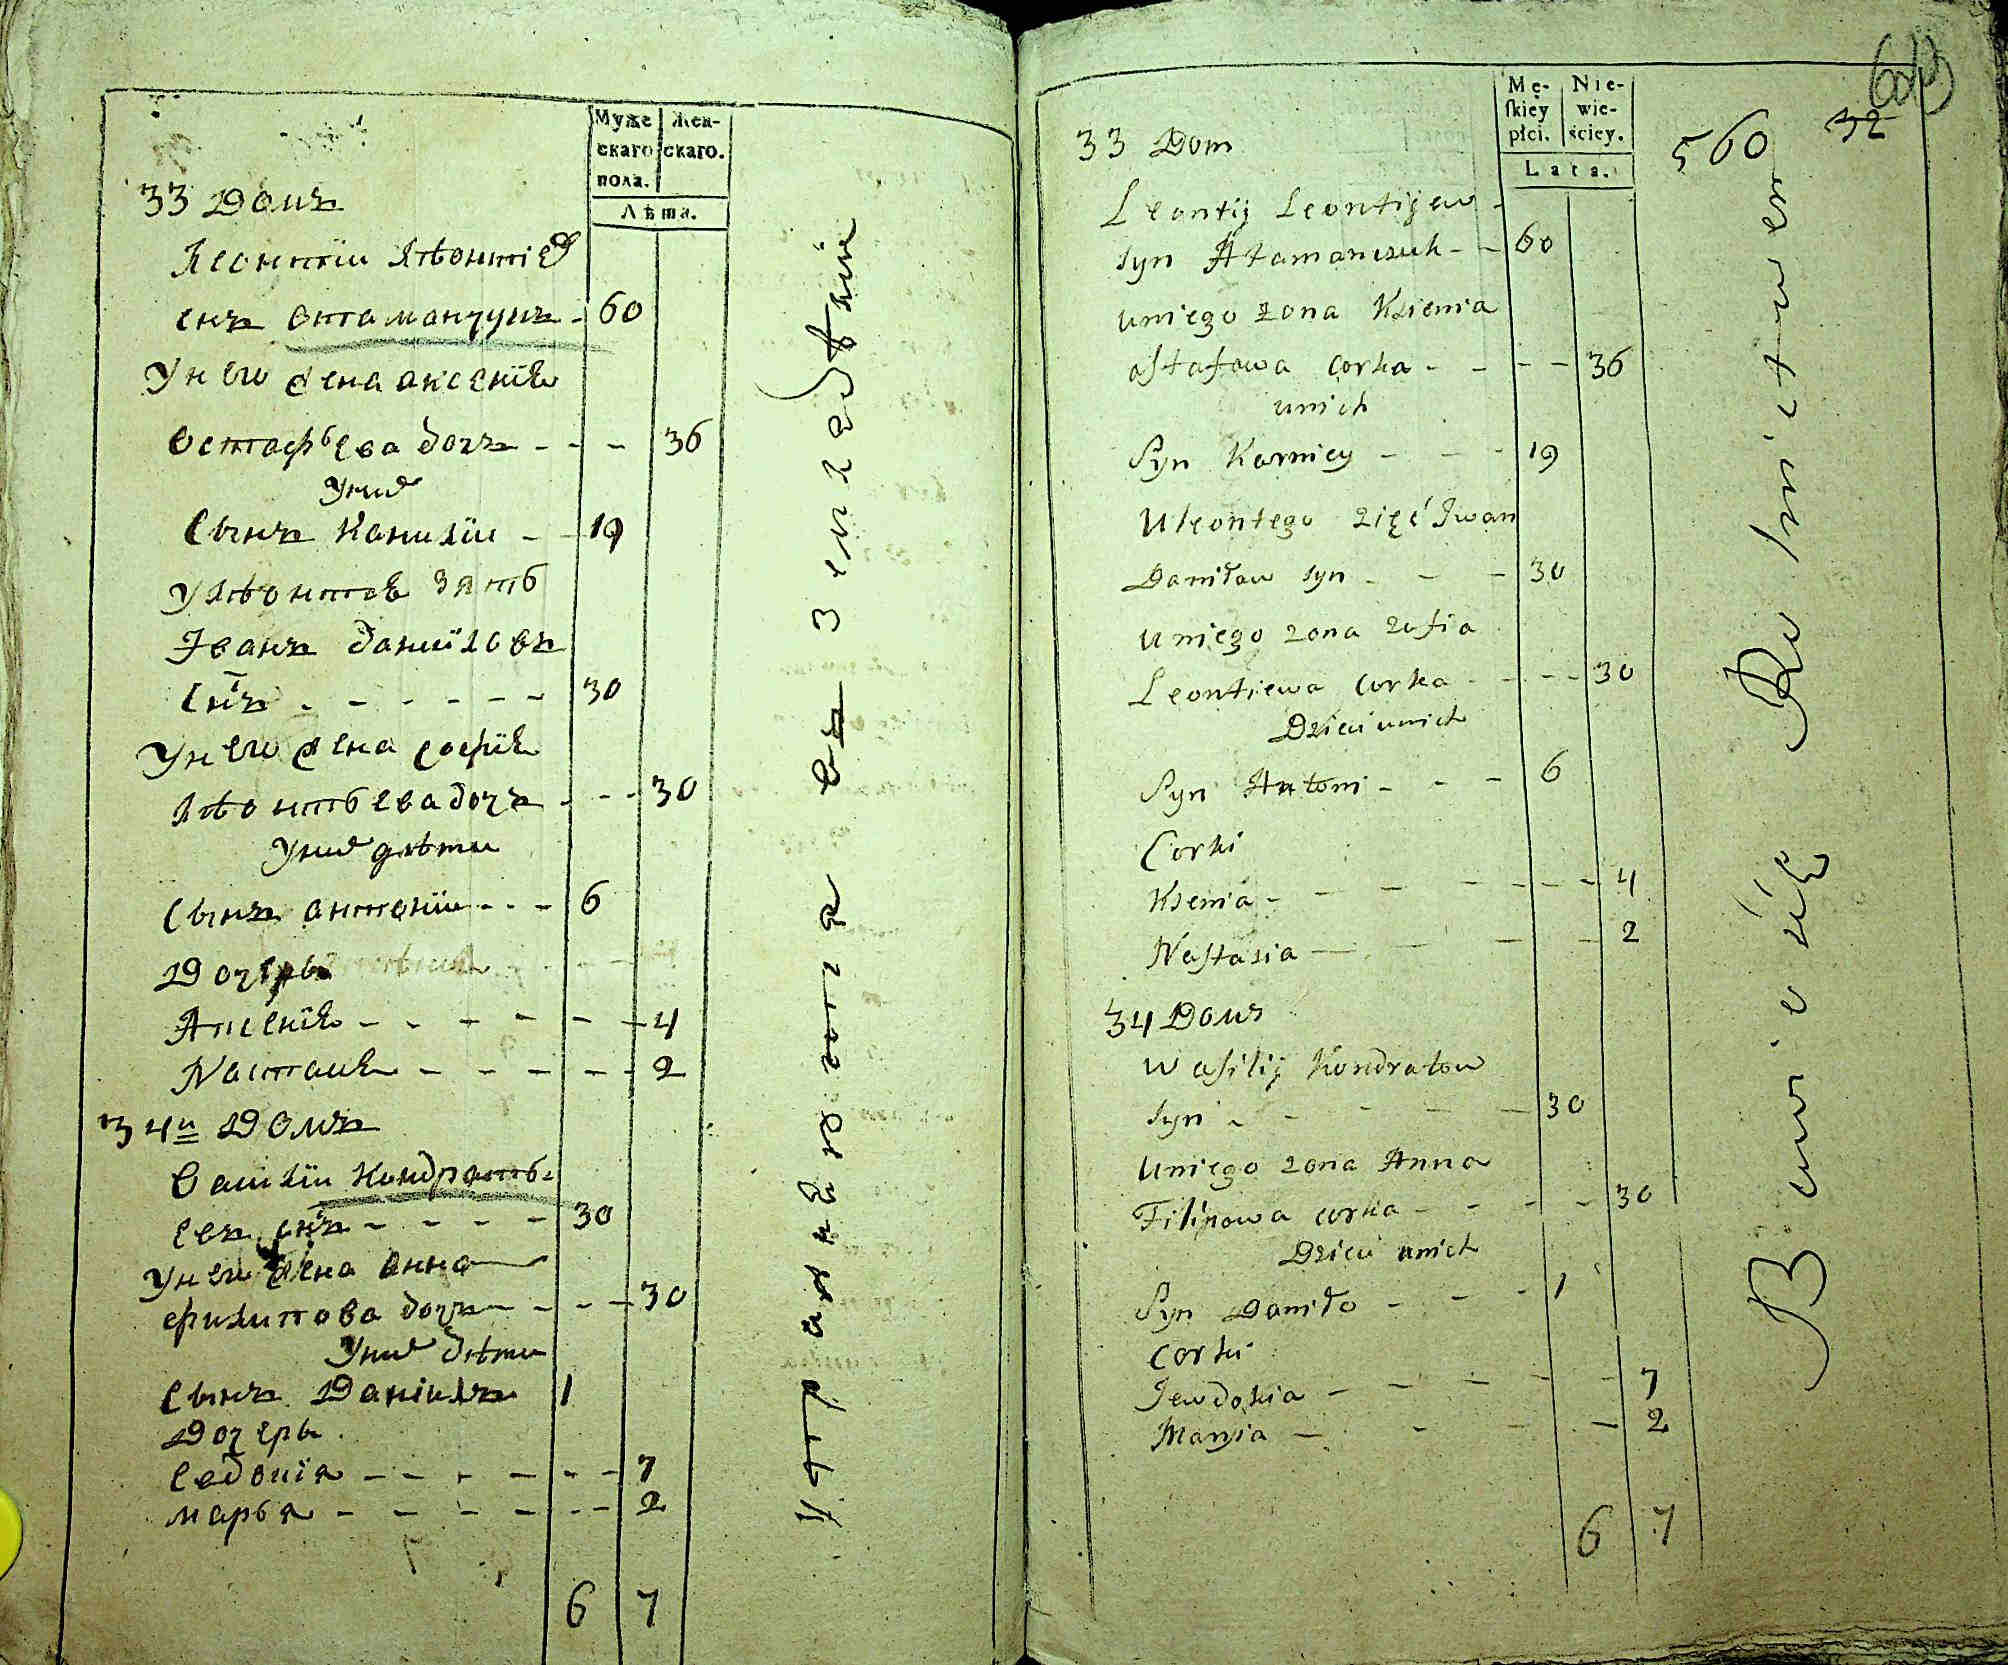 Муже Жен-
скаго скаго.
пола.
Лѣта.
33 Домъ
Леонтїи Лѣонтїев
снъ Отаманчукъ - 60
У него жена аксенїѣ
Остафьева дочъ - - - 36
У них
Сынъ Корнилїи - - 19
У Лѣонтов зять
Іванъ данїиловъ
снъ - - - - - - 30
У него жена софїѣ
Лѣонтьева дочъ - - - 30
У них дѣти
Сынъ антонїи - - - 6
Дочерь
Аксенїѣ - - - - - - 4
Настасиѣ - - - - - - 2
34й Домъ
Василїи Кондрать-
евъ снъ - - - - 30
У него жена анна
филипова дочъ - - - - 30
У них дѣти
Сынъ Данїилъ 1
Дочерь
Евдокїя - - - - - - 7
марья - - - - - - 2
6 7
Mę- Nie-
skiey wie-
płci. ściey.
Lata.
560 32
33 Dom
Leontij Leontijew -
syn Atamanczuk - - 60
u niego żona Ksienia
ostafowa corka - - - - 36
u nich
Syn Korniey - - - 19
U leontego zięć Iwan
Daniłow syn - - - 30
u niego zona zofia
Leontiewa corka - - - - 30
Dzieci u nich
Syn Antoni - - - 6
Corki
Ksenia - - - - - - - 4
Nastasia - - - - 2
34 Домъ
Wasilij Kondratow
syn - - - - - 30
U niego zona Anna
Filipowa corka - - - - 30
Dzieci u nich
Syn Daniło - - - 1
Corki
Jewdokia - - - - - - 7
Marya - - - - 2
6 7